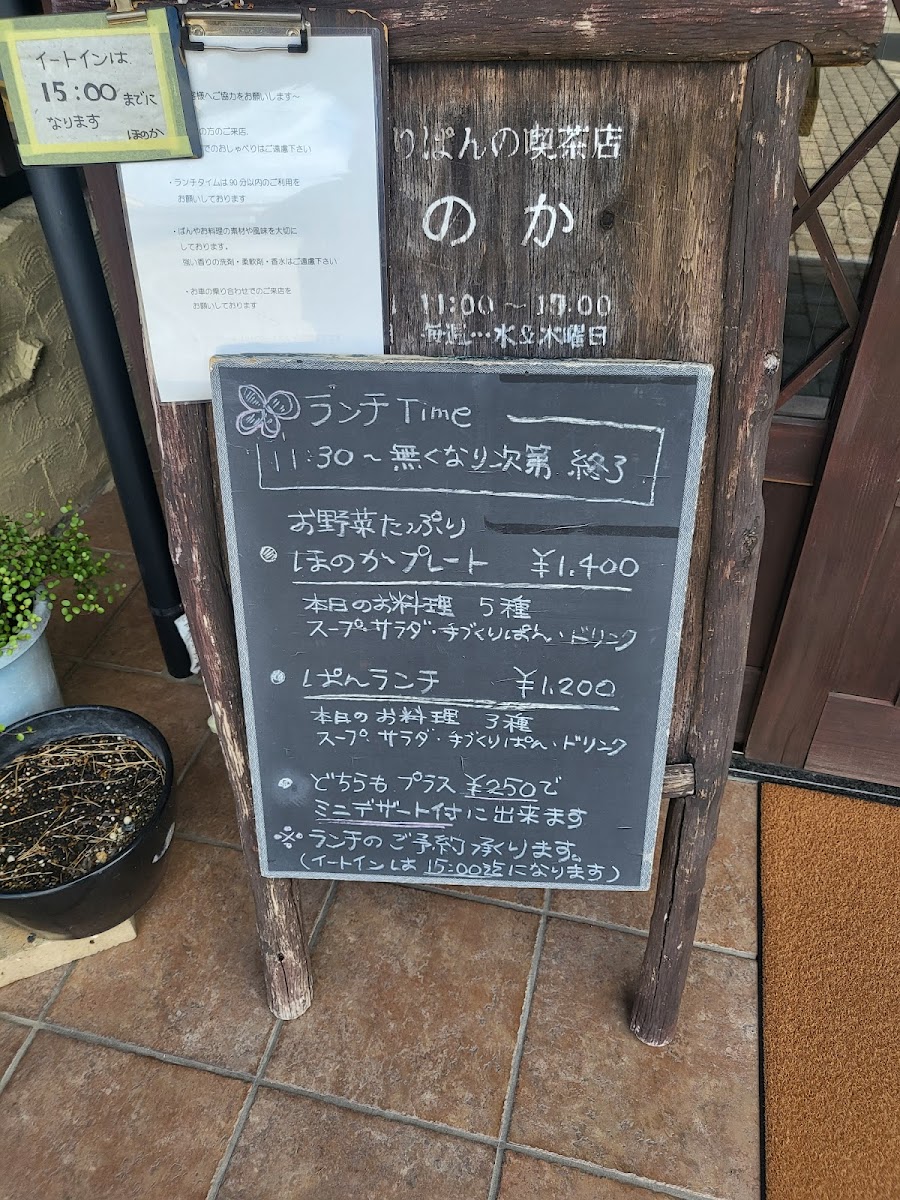 イートインは
15:00までに
なります
ほのか
様へご協力をお願いします～
の方のご来店、
でのおしゃべりはご遠慮下さい
・ランチタイムは90分以内のご利用を
お願いしております
・ぱんやお料理の素材や風味を大切に
しております。
強い香りの洗剤・柔軟剤・香水はご遠慮下さい
・お車の乗り合わせでのご来店を
お願いしております
りぱんの喫茶店
のか
11:00～17:00
毎週…水&木曜日
ランチTime
11:30～無くなり次第 終了
お野菜たっぷり
ほのかプレート ¥1,400
本日のお料理 5種
スープ・サラダ・手づくりぱん・ドリンク
ぱんランチ ¥1,200
本日のお料理 3種
スープ・サラダ・手づくりぱん・ドリンク
どちらも プラス ¥250で
ミニデザート付に出来ます
※ランチのご予約承ります。
(イートインは 15:00迄になります)